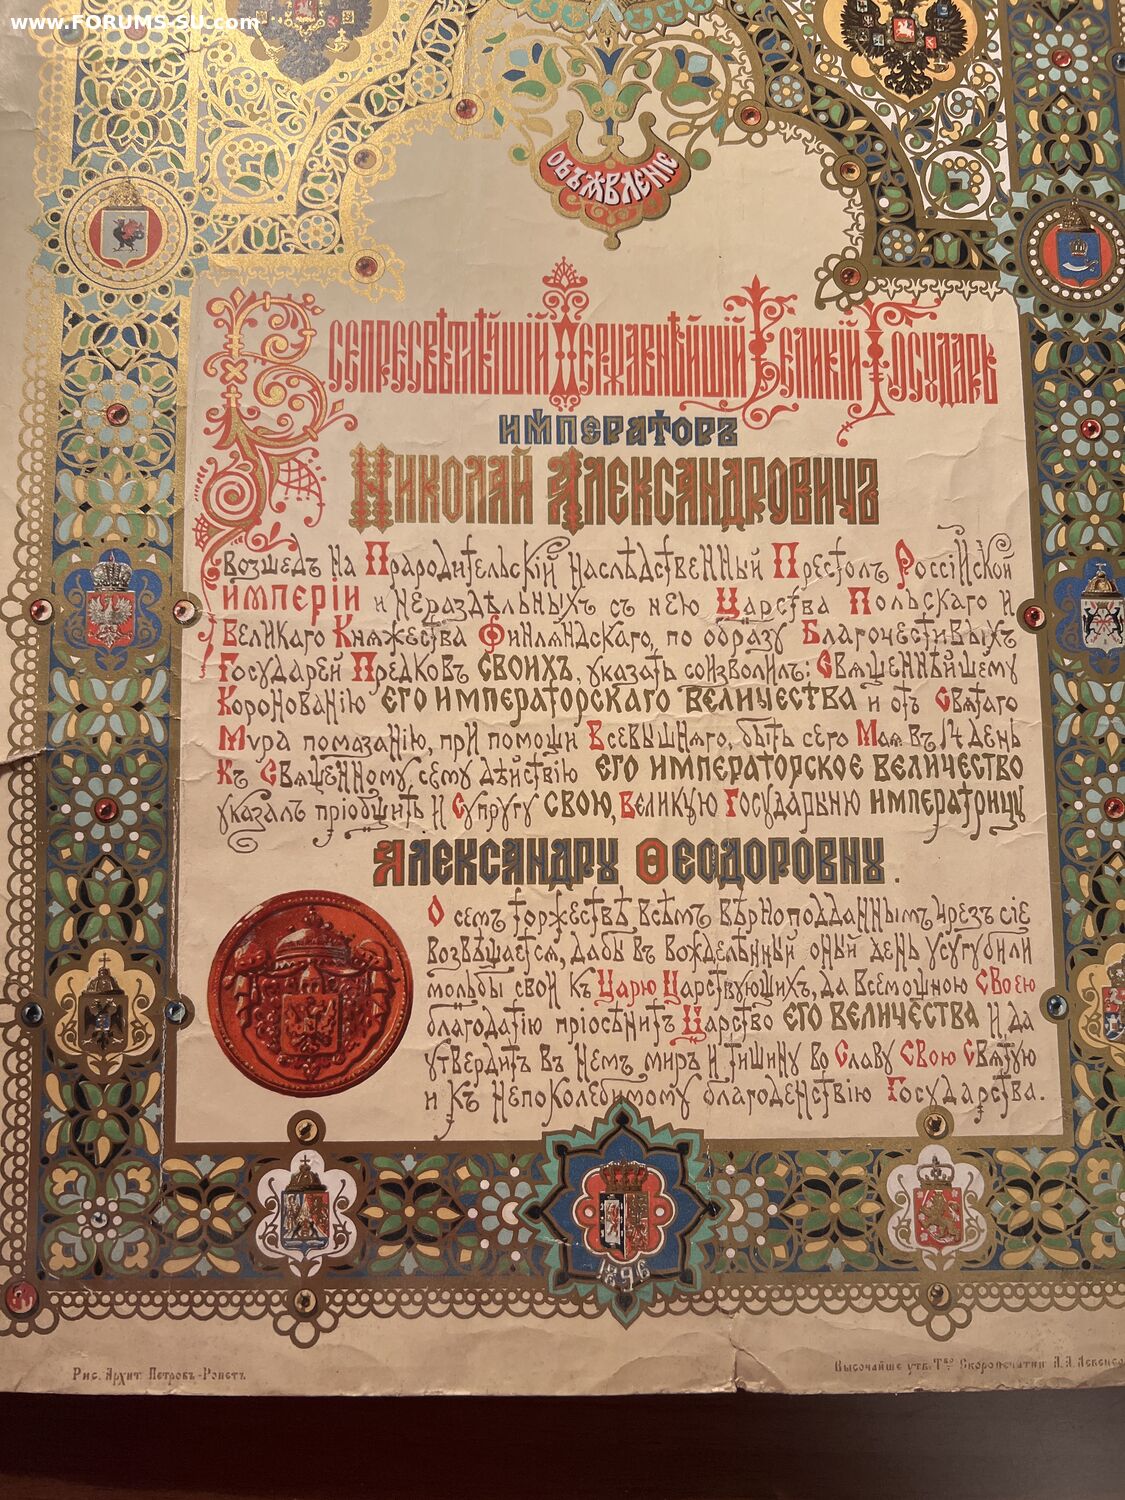 www.FORUMS-SU.com
ОБЪЯВЛЕНІЕ
ВСЕПРЕСВѢТЛѢЙШІЙ ДЕРЖАВНѢЙШІЙ ВЕЛИКІЙ ГОСУДАРЬ
ИМПЕРАТОРЪ
НИКОЛАЙ АЛЕКСАНДРОВИЧЪ
ВОЗШЕДЪ НА ПРАРОДИТЕЛЬСКІЙ НАСЛѢДСТВЕННЫЙ ПРЕСТОЛЪ РОССІЙСКОЙ
ИМПЕРІИ И НЕРАЗДѢЛЬНЫХЪ СЪ НЕЮ ЦАРСТВА ПОЛЬСКАГО И
ВЕЛИКАГО КНЯЖЕСТВА ФИНЛЯНДСКАГО, ПО ОБРАЗУ БЛАГОЧЕСТИВЫХЪ
ГОСУДАРЕЙ ПРЕДКОВЪ СВОИХЪ, УКАЗАТЬ СОИЗВОЛИЛЪ: СВЯЩЕННѢЙШЕМУ
КОРОНОВАНІЮ ЕГО ИМПЕРАТОРСКАГО ВЕЛИЧЕСТВА И ОТЪ СВЯТАГО
МѴРА ПОМАЗАНІЮ, ПРИ ПОМОЩИ ВСЕВЫШНЯГО, БЫТЬ СЕГО МАЯ ВЪ 14 ДЕНЬ
КЪ СВЯЩЕННОМУ СЕМУ ДѢЙСТВІЮ ЕГО ИМПЕРАТОРСКОЕ ВЕЛИЧЕСТВО
УКАЗАЛЪ ПРІОБЩИТЬ И СУПРУГУ СВОЮ, ВЕЛИКУЮ ГОСУДАРЫНЮ ИМПЕРАТРИЦУ
АЛЕКСАНДРУ ѲЕОДОРОВНУ.
О СЕМЪ ТОРЖЕСТВѢ ВСѢМЪ ВѢРНОПОДДАННЫМЪ ЧРЕЗЪ СІЕ
ВОЗВѢЩАЕТСЯ, ДАБЫ ВЪ ВОЖДЕЛѢННЫЙ ОНЫЙ ДЕНЬ УСУГУБИЛИ
МОЛЬБЫ СВОИ КЪ ЦАРЮ ЦАРСТВУЮЩИХЪ, ДА ВСЕМОЩНОЮ СВОЕЮ
БЛАГОДАТІЮ ПРІОСѢНИТЪ ЦАРСТВО ЕГО ВЕЛИЧЕСТВА И ДА
УТВЕРДИТЪ ВЪ НЕМЪ МИРЪ И ТИШИНУ ВО СЛАВУ СВОЮ СВЯТУЮ
И КЪ НЕПОКОЛЕБИМОМУ БЛАГОДЕНСТВІЮ ГОСУДАРСТВА.
1896
Рис. Архит. Петровъ-Ропетъ
Высочайше утв. Т-во Скоропечатни А. А. Левенсо